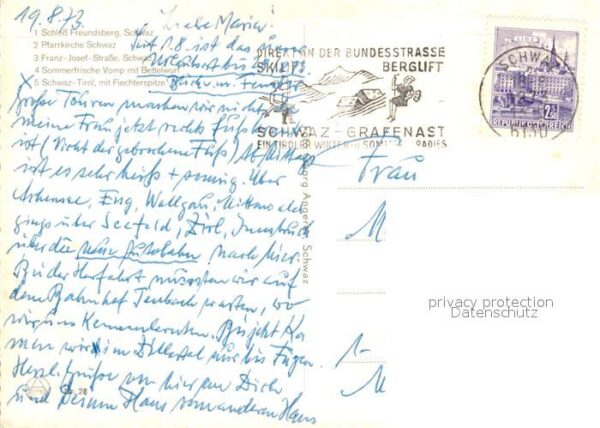 19.8.73 Liebe Maria!
1 Schloß Freundsberg, Schwaz
2 Pfarrkirche Schwaz
Seit 1.8 ist das
3 Franz-Josef-Straße, Schwaz
Urlaubsort bis
4 Sommerfrische Vomp mit Bettelwurf
5 Schwaz-Tirol, mit Fiechterspitze
Blick v. m. Fenster
große Touren machen wir nicht
meine Frau jetzt rechts Fuß
ist (nicht der gebrochene Fuß) Ab Mittag
ist es sehr heiß + sonnig. Über
Achensee, Eng, Wallgau, Mittenwald
gings über Seefeld, Zirl, Innsbruck
über die neue Autobahn nach hier.
Bei der Herfahrt mussten wir auf
dem Bahnhof Jenbach warten, wo
wir uns kennenlernten. Bis jetzt ka-
men wir im Zillertal nur bis Fügen.
Herzl. Grüße von hier an Dich
und Deinem Haus vom anderen Haus
28
Georg Angerer, Schwaz
DIREKT AN DER BUNDESSTRASSE
SKILIFTS BERGLIFT
SCHWAZ-GRAFENAST
EIN TIROLER WINTER- U. SOMMERPARADIES
SCHWAZ
6130
LINZ
2.50
REPUBLIK ÖSTERREICH
Frau
M.
1-
M
privacy protection
Datenschutz